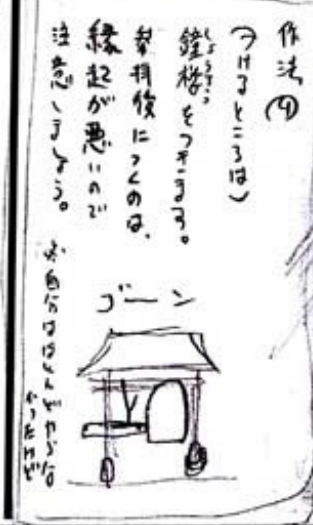 作法④
(つけるところは)
鐘楼をつきます。
参拝後につくのは、
縁起が悪いので
注意しましょう。
※自分はほとんどやらな
かったけど
ゴーン